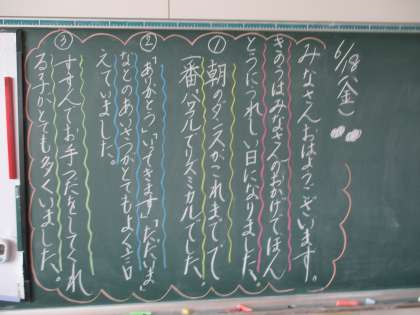 6/18(金)
みなさんおはようございます。
きのうはみなさんのおかげでほん
とうにうれしい日になりました。
①朝のダンスがこれまでで
一番パワフルでリズミカルでした。
②「ありがとう」「いってきます」「ただいま」
などのあいさつがとてもよく言
えていました。
③すすんでお手つだいをしてくれ
る子がとても多くいました。